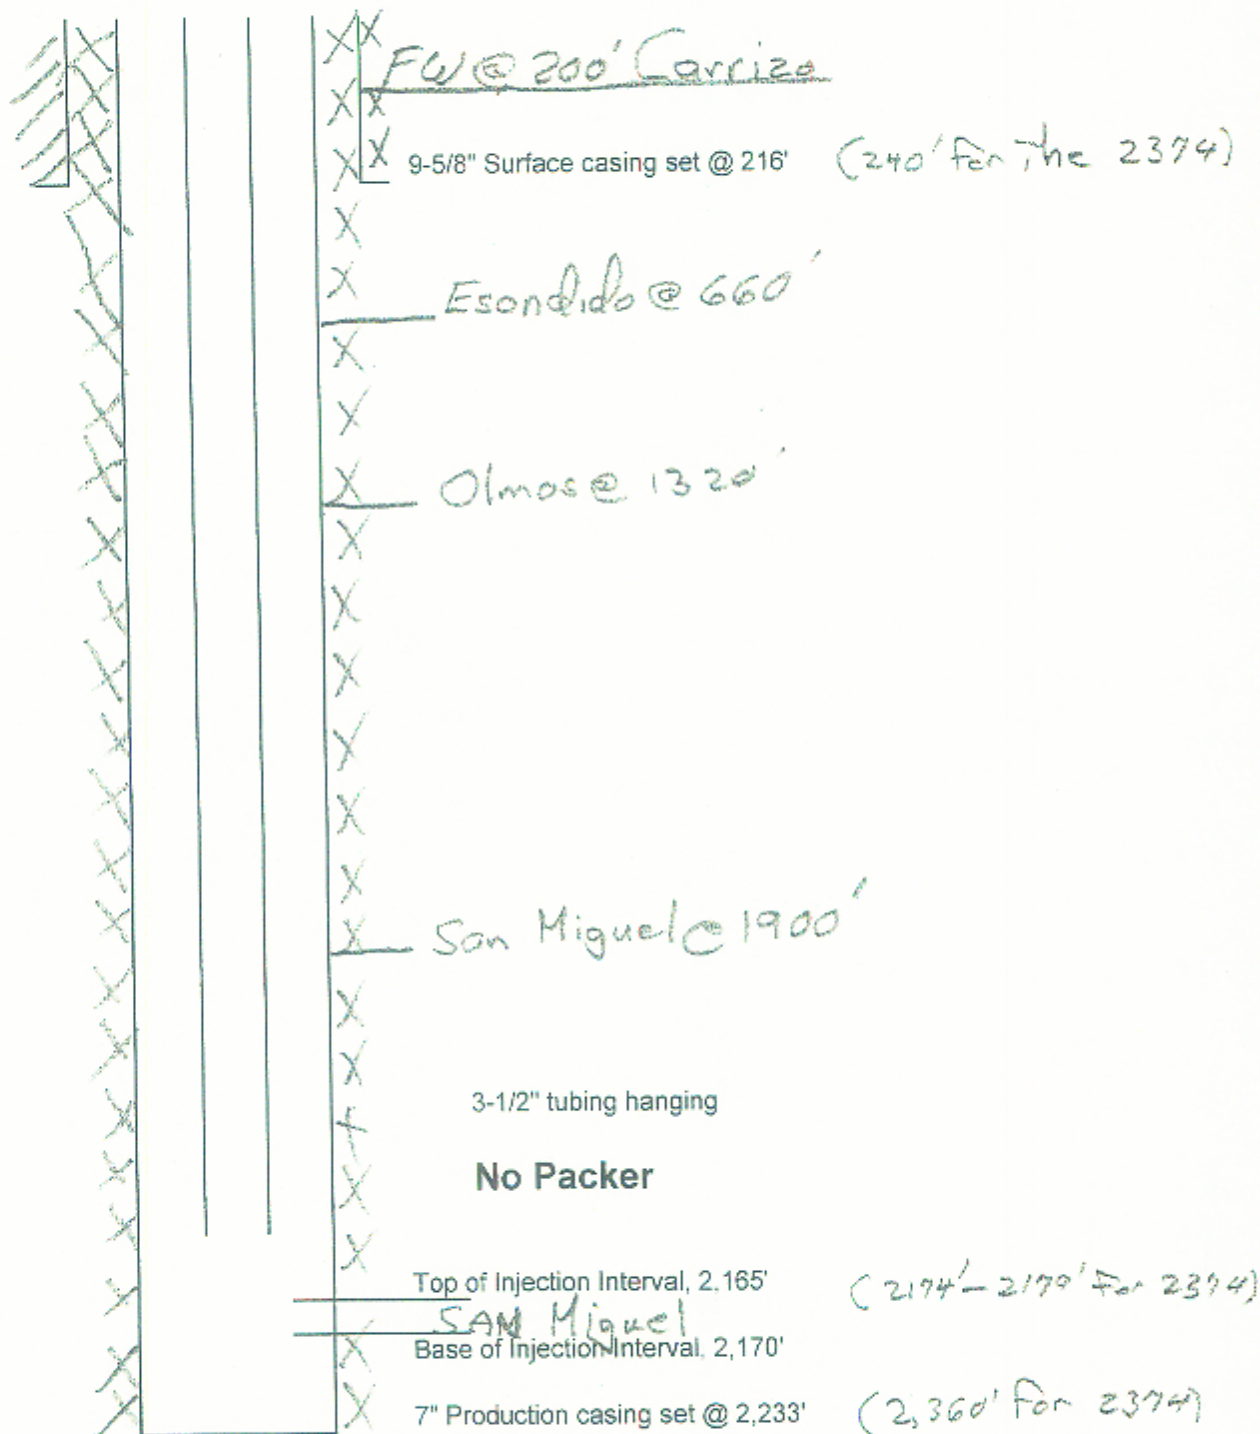 FW @ 200' Carrizo
9-5/8" Surface casing set @ 216' (240' for The 2374)
Esondido @ 660'
Olmos @ 1320'
San Miguel @ 1900'
3-1/2" tubing hanging
No Packer
Top of Injection Interval, 2.165' (2174'-2179' For 2374)
SAN Miguel
Base of Injection Interval, 2,170'
7" Production casing set @ 2,233' (2,360' for 2374)